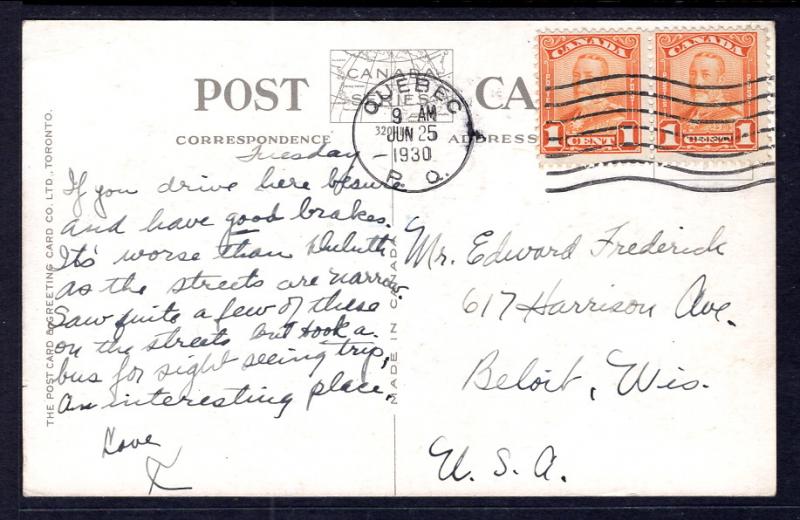 POST CA
CANADA
SERIES
CORRESPONDENCE
ADDRESS
QUEBEC
9 AM
JUN 25
1930
P. Q.
CANADA
1 CENT 1
CANADA
1 CENT 1
Tuesday
If you drive here besure
and have good brakes.
It's worse than Duluth
as the streets are narrow.
Saw quite a few of these
on the streets but took a
bus for sight seeing trip,
An interesting place,
Love
Mr. Edward Frederick
617 Harrison Ave.
Beloit, Wis.
U. S. A.
THE POST CARD & GREETING CARD CO. LTD., TORONTO.
MADE IN CANADA